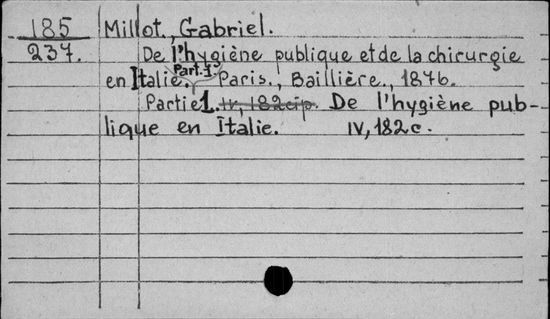 185 Millot, Gabriel.
237. De l'hygiène publique et de la chirurgie
Part. 1.
en Italie. Paris., Baillière., 1876.
Partie 1. IV, 182 c. De l'hygiène pub-
lique en Italie. IV, 182 c.